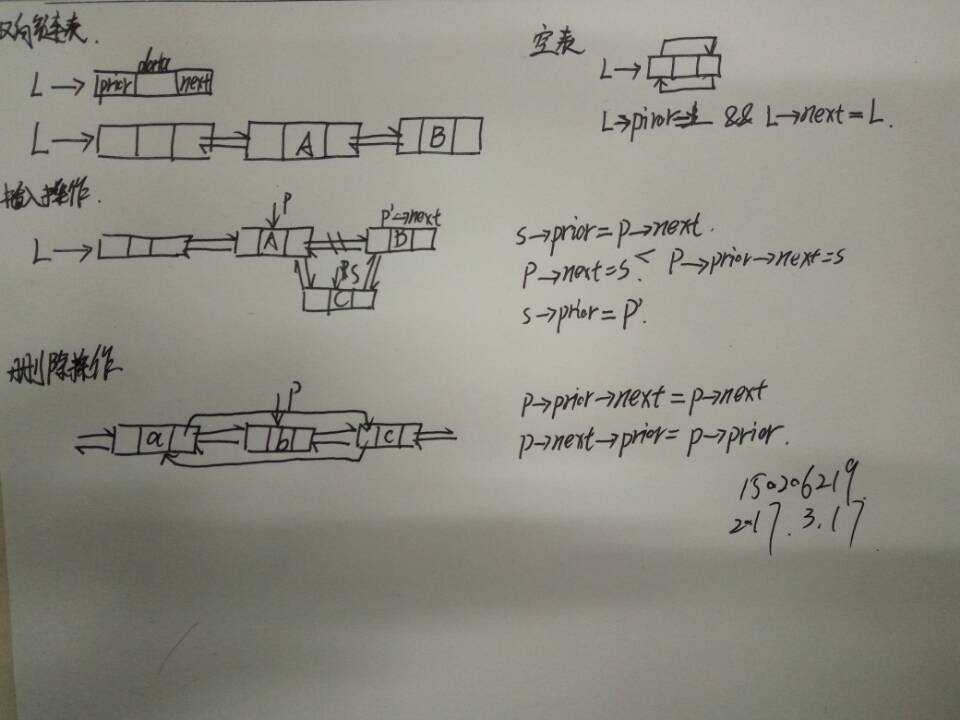 双向链表.
data
L→ prior next
L→ A B
空表
L→
L→piror=L && L→next=L.
插入操作.
P P'→next
L→ A B
S
C
s→prior=p→next.
P→next=s. P→prior→next=s
s→prior=P'.
删除操作
P
a b c
P→prior→next=p→next
p→next→prior=p→prior.
150206219.
2017.3.17